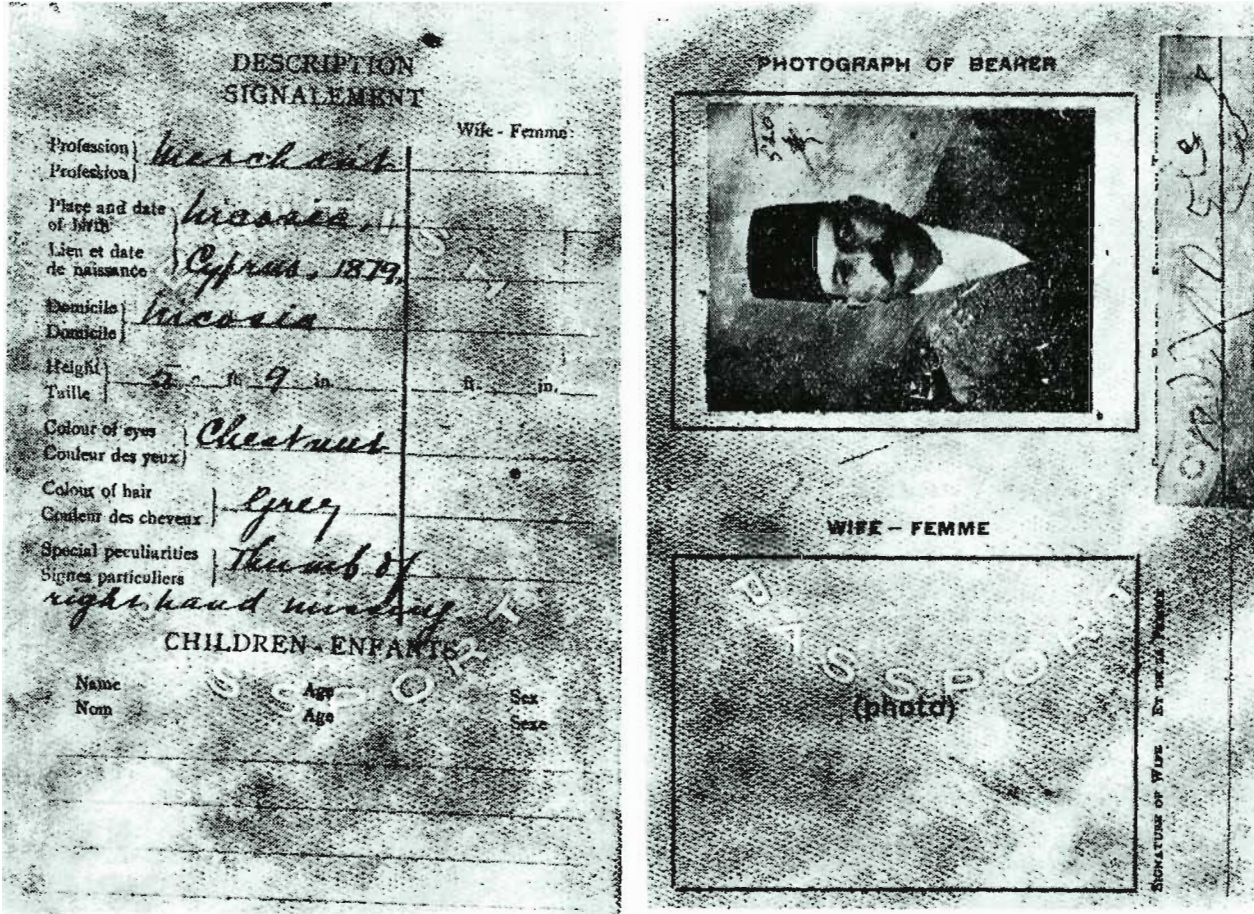 DESCRIPTION
SIGNALEMENT
Wife - Femme
Profession
Profession
Merchant
Place and date
of birth
Nicosia,
Lieu et date
de naissance
Cyprus, 1879.
Domicile
Domicile
Nicosia
Height
Taille
5 ft. 9 in. ft. in.
Colour of eyes
Couleur des yeux
Chestnut
Colour of hair
Couleur des cheveux
Grey
Special peculiarities
Signes particuliers
Thumb of
right hand missing.
CHILDREN - ENFANTS
Name Age Sex
Nom Age Sexe
PHOTOGRAPH OF BEARER
WIFE - FEMME
PASSPORT
(photo)
SIGNATURE OF WIFE ET DE SA FEMME